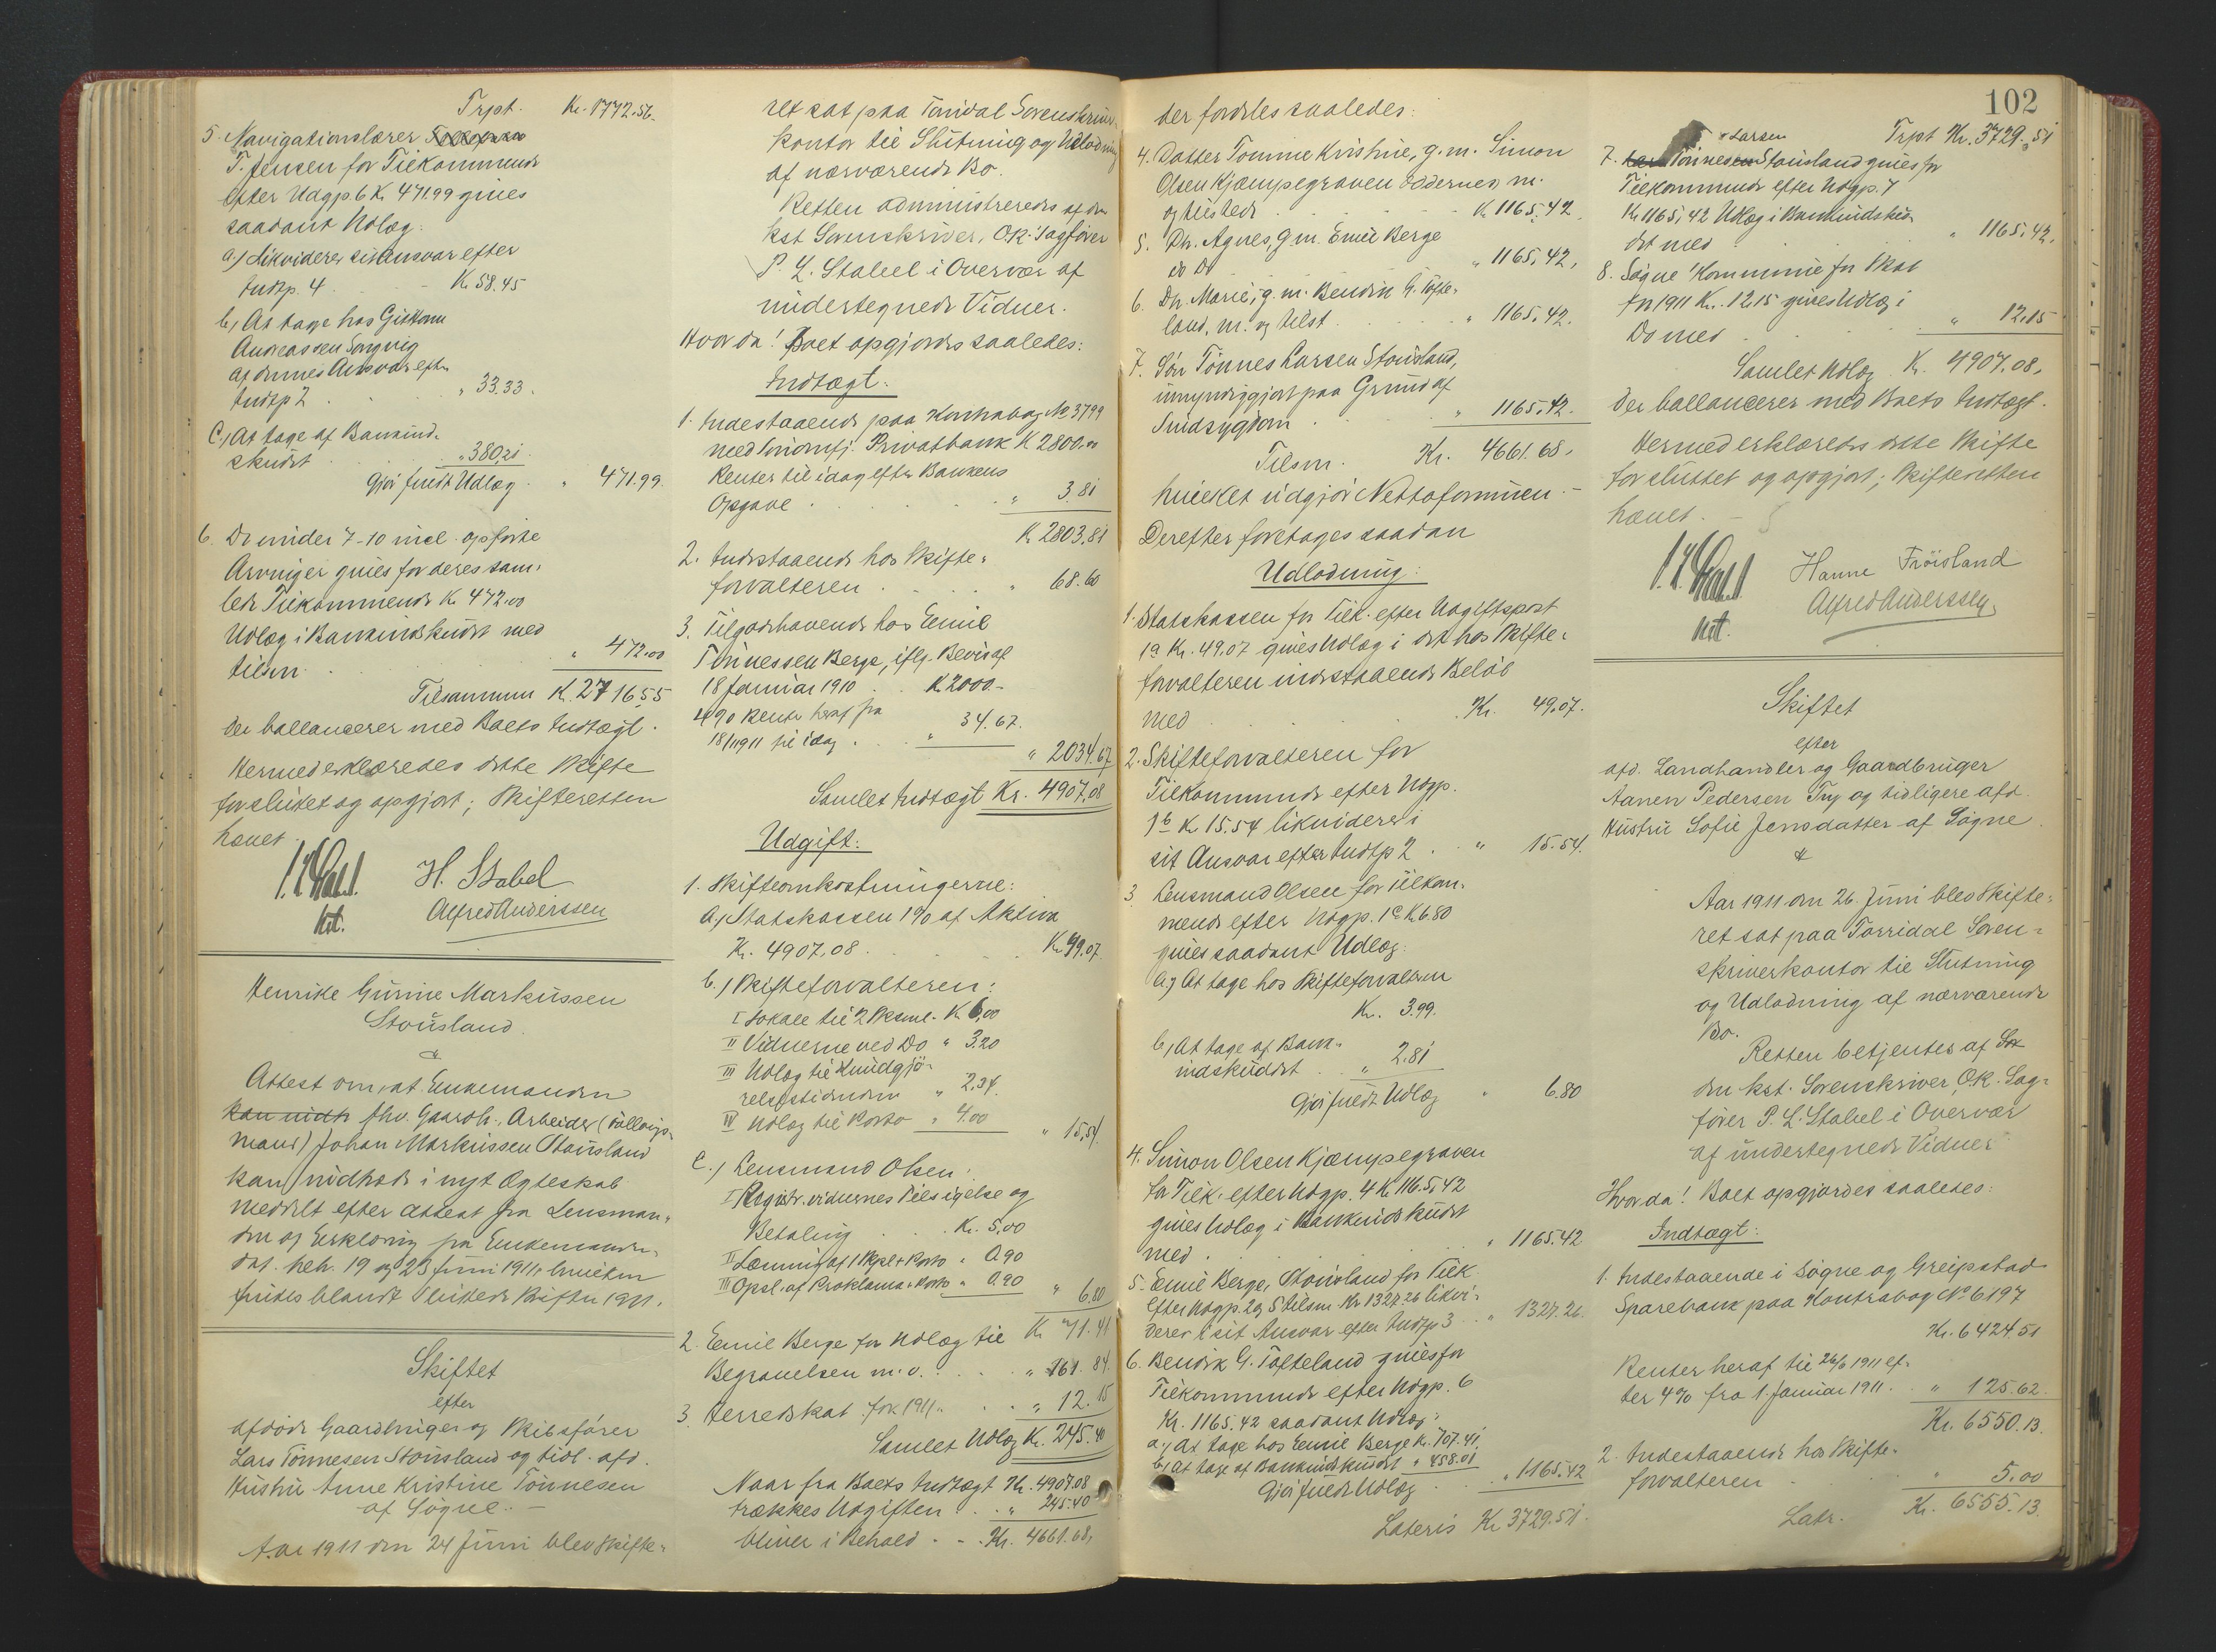 Trpt. Kr. 1772.56.
5. Navigationslærer
T. Jensen for Tilkommende
efter Udgp. 6 Kr. 471.99 gives
saadant Udlæg:
a.) Likviderer sit Ansvar efter
Indtp. 4 Kr. 58.45
b.) At tage hos
Andreassen Songvig
af dennes Ansvar efter
Indtp 2 " 33.33.
C.) At tage af Bankind-
skudt " 380.21
Gjør fuldt Udlæg " 471.99.
6. De under 7-10 incl. opførte
Arvinger gives for deres sam-
lede Tilkommende Kr. 472.00
Udlæg i Bankindskudet med
tilsm. " 472.00
Tilsammen Kr. 2716.55
der ballancerer med Boets Indtægt.
Hermed erklæredes dette Skifte
for sluttet og opgjort; Skifteretten
hævet.
P. L. Stabel
kst.
H. Stabel
Alfred Anderssen
Henrike Gurine Markussen
Stousland.
&
Attest om, at Enkemanden
kan uidh fhv. Gaardb., Arbeider (
mand) Johan Markussen Stousland
kan hensidde i nyt Ægteskab
meddelt efter Attest fra Lensman-
den og Erklæring fra Enkemanden
dat. hch. 19 og 23 Juni 1911, hvilken
findes blandt sluttede Skifter 1911.
Skiftet
efter
afdøde Gaardbruger og Skibsfører
Lars Tönnesen Stousland og tidl. afd.
Hustru Anne Kristine Tönnesen
af Søgne. -
Aar 1911 den 24 Juni blev Skifte-
ret sat paa Torridal Sorenskriver-
kontor til Slutning og Udlodning
af nærværende Bo.
Retten administreredes af den
kst Sorenskriver, O.R. Sagfører
P. L. Stabel i Overvær af
undertegnede Vidner.
Hvorda! Boet opgjordes saaledes:
Indtægt:
1. Indestaaende paa Kontrabog No 3799
med Privatbank K 2800.00
Renter til idag efter Bankens
Opgave " 3.81
K. 2803.81
2. Indestaaende hos Skifte-
forvalteren " 68.60
3. Tilgodehavende hos Emil
Tönnessen Berge, iflg. Bevis af
18 Januar 1910 K 2000.-
4% Rente heraf fra
18/1 1911 til idag " 34.67.
" 2034.67
Samlet Indtægt Kr. 4907.08
Udgift:
1. Skifteomkostningerne:
a.) Statskassen 1% af Aktiva
Kr. 4907.08 Kr. 49.07
b.) Skifteforvalteren:
I Lokale til 2 Sksml. K. 6.00
II Vidnerne ved Do " 3.20
III Udlæg til Kundgjø-
relsestidenden " 2.34
IV Udlæg til Porto " 4.00
" 15.54
C.) Lensmand Olsen:
I Registr. vidnernes Tilsigelse og
Betaling Kr. 5.00
II Lævning af 1 Skpl + Porto " 0.90
III Opsl. af Proklama + Porto " 0.90
" 6.80
Kr. 71.41
2. Emil Berge for Udlæg til
Begravelsen m.v. " 161.84
3. Herredskat for 1911 " 12.15
Samlet Udlæg Kr. 245.40
Naar fra Boets Indtægt Kr. 4907.08
trækkes Udgiften " 245.40
bliver i Behold Kr. 4661.68,
der fordeles saaledes:
4. Datter Tomine Kristine, g.m. Simon
Olsen Kjæmpegraven Oddernes m.
og tilstede K. 1165.42.
5. Do. Agnes, g.m. Emil Berge
do Do " 1165.42,
6. Do. Marie, g.m. Bendik G. Tofte-
land, m. og tilst. " 1165.42.
7. Søn Tönnes Larsen Stousland,
umyndiggjort paa Grund af
Sindsygdom " 1165.42.
Tilsm. Kr. 4661.68.
hvilket udgjør Nettoformuen. -
Derefter foretages saadan
Udlodning:
1. Statskassen for Tilk. efter Udgiftspost
1a Kr. 49.07 gives Udlæg i det hos Skifte-
forvalteren indestaaende Beløb
med Kr. 49.07.
2. Skifteforvalteren for
Tilkommende efter Udgp.
1b K 15.54 likviderer i
sit Ansvar efter Indtp 2 " 15.54.
3. Lensmand Olsen for Tilkom-
mende efter Udgp. 1c K 6.80
gives saadant Udlæg:
a.) At tage hos Skifteforvalteren
Kr. 3.99.
b.) At tage af Bank-
indskuddet " 2.81
Gjør fuldt Udlæg " 6.80
4. Simon Olsen Kjæmpegraven
for Tilk. efter Udgp. 4 K 1165.42
gives Udlæg i Bankindskudet
med " 1165.42
5. Emil Berge, Stousland for Tilk
efter Udgp. 2 og 5 tilsm. Kr 1327.26 likvi-
derer i sit Ansvar efter Indtp 3 " 1327.26
6. Bendik G. Tofteland gives for
Tilkommende efter Udgp. 6
Kr. 1165.42 saadant Udlæg:
a.) At tage hos Emil Berge Kr. 707.41.
b.) At tage af Bankindskudet " 458.01
Gjør fuldt Udlæg " 1165.42
Lateris Kr 3729.51.
102
Trpt Kr. 3729.51
× Larsen
7. Tönnesen Stousland gives for
Tilkommende efter Udgp. 7
Kr 1165.42 Udlæg i Bankindsku-
det med " 1165.42.
8. Søgne Kommune for Skat
for 1911 Kr. 12.15 gives Udlæg i
Do med " 12.15
Samlet Udlæg Kr. 4907.08,
der ballancerer med Boets Indtægt.
Hermed erklæredes dette Skifte
for sluttet og opgjort; Skifteretten
hævet. -
P. L. Stabel
kst.
Hanne Fröisland
Alfred Anderssen
Skiftet
efter
afd. Landhandler og Gaardbruger
Aanen Pedersen Try og tidligere afd.
Hustru Sofie Jensdatter af Søgne
&
Aar 1911 den 26. Juni blev Skifte-
ret sat paa Torridal Soren-
skriverkontor til Slutning
og Udlodning af nærværende
Bo.
Retten betjentes af
den kst. Sorenskriver, O.R. Sag-
fører P. L. Stabel i Overvær
af undertegnede Vidner
Hvorda! Boet opgjordes saaledes:
Indtægt:
1. Indestaaende i Søgne og Greipstad
Sparebank paa Kontrabog No 6197
Kr. 6424.51
Renter heraf til 26/6 1911 ef-
ter 4% fra 1. Januar 1911 " 125.62.
Kr. 6550.13.
2. Indestaaende hos Skifte-
forvalteren " 5.00
Latr. Kr. 6555.13.